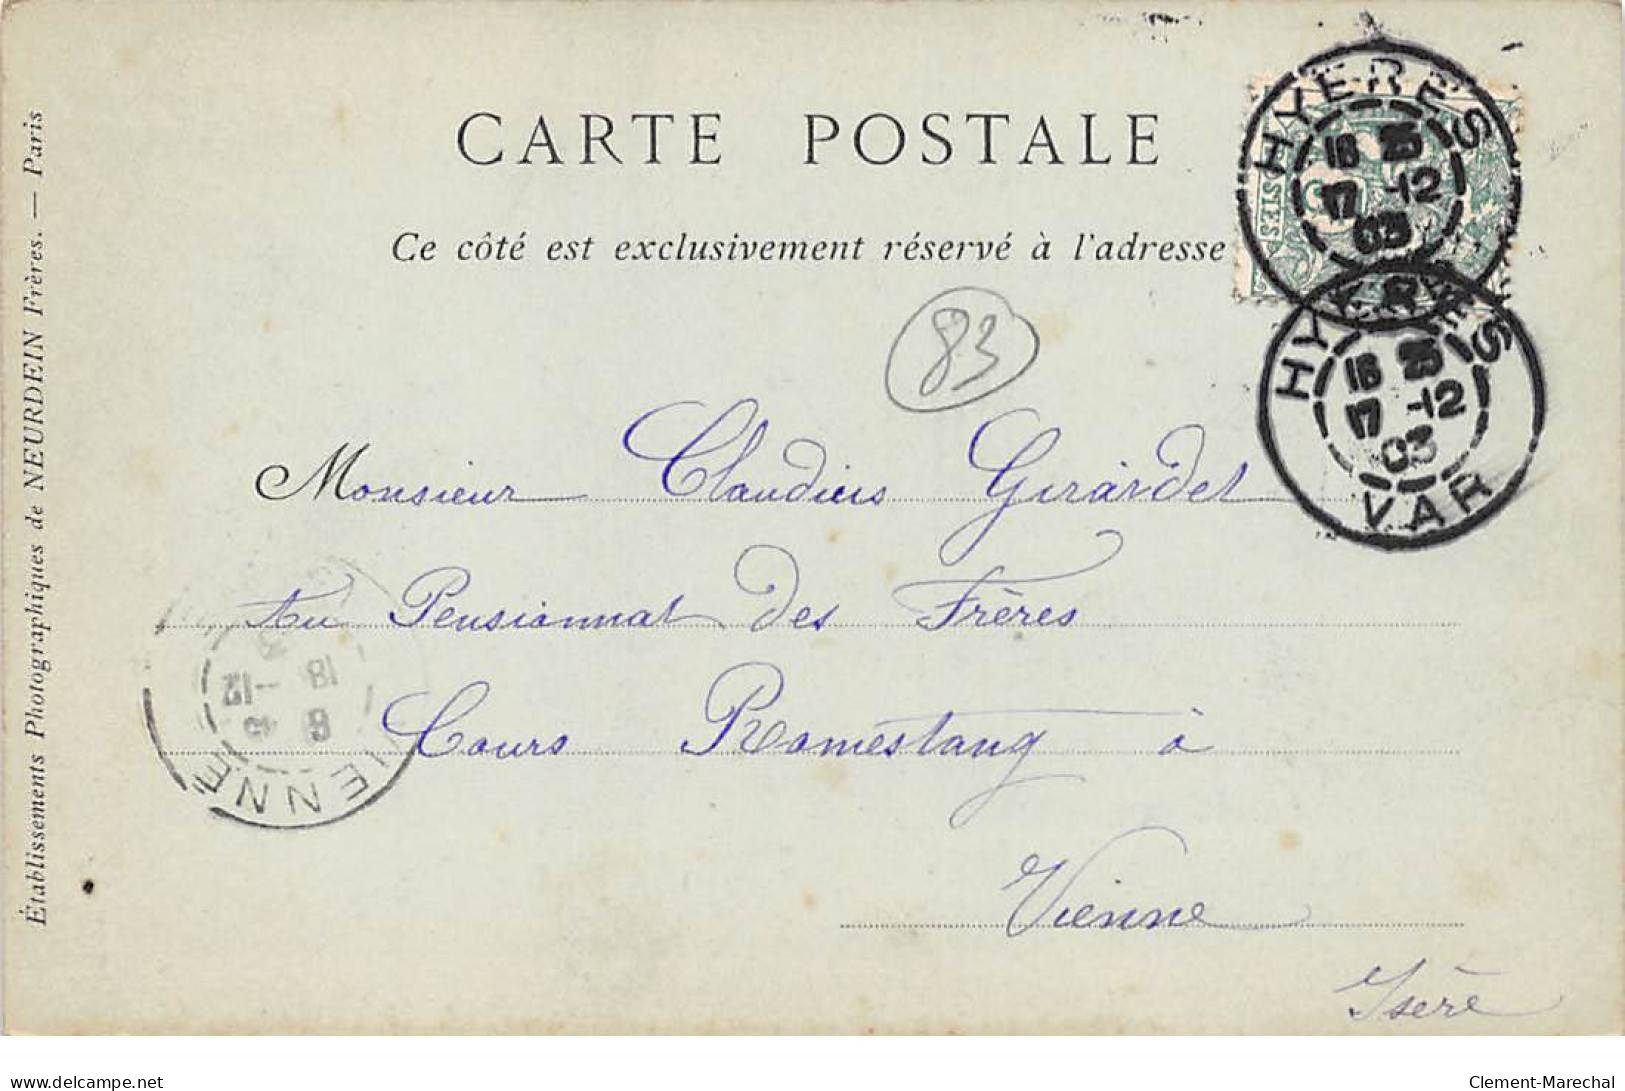 CARTE POSTALE
Ce côté est exclusivement réservé à l'adresse
Établissements Photographiques de NEURDEIN Frères. — Paris
HYERES
17 -12
03
HYERES
17 -12
03
VAR
83
Monsieur Claudius Girardet
Au Pensionnat des Frères
Cours Romestang à
Vienne
Isère
18 -12
VIENNE
delcampe.net
Clement-Marechal